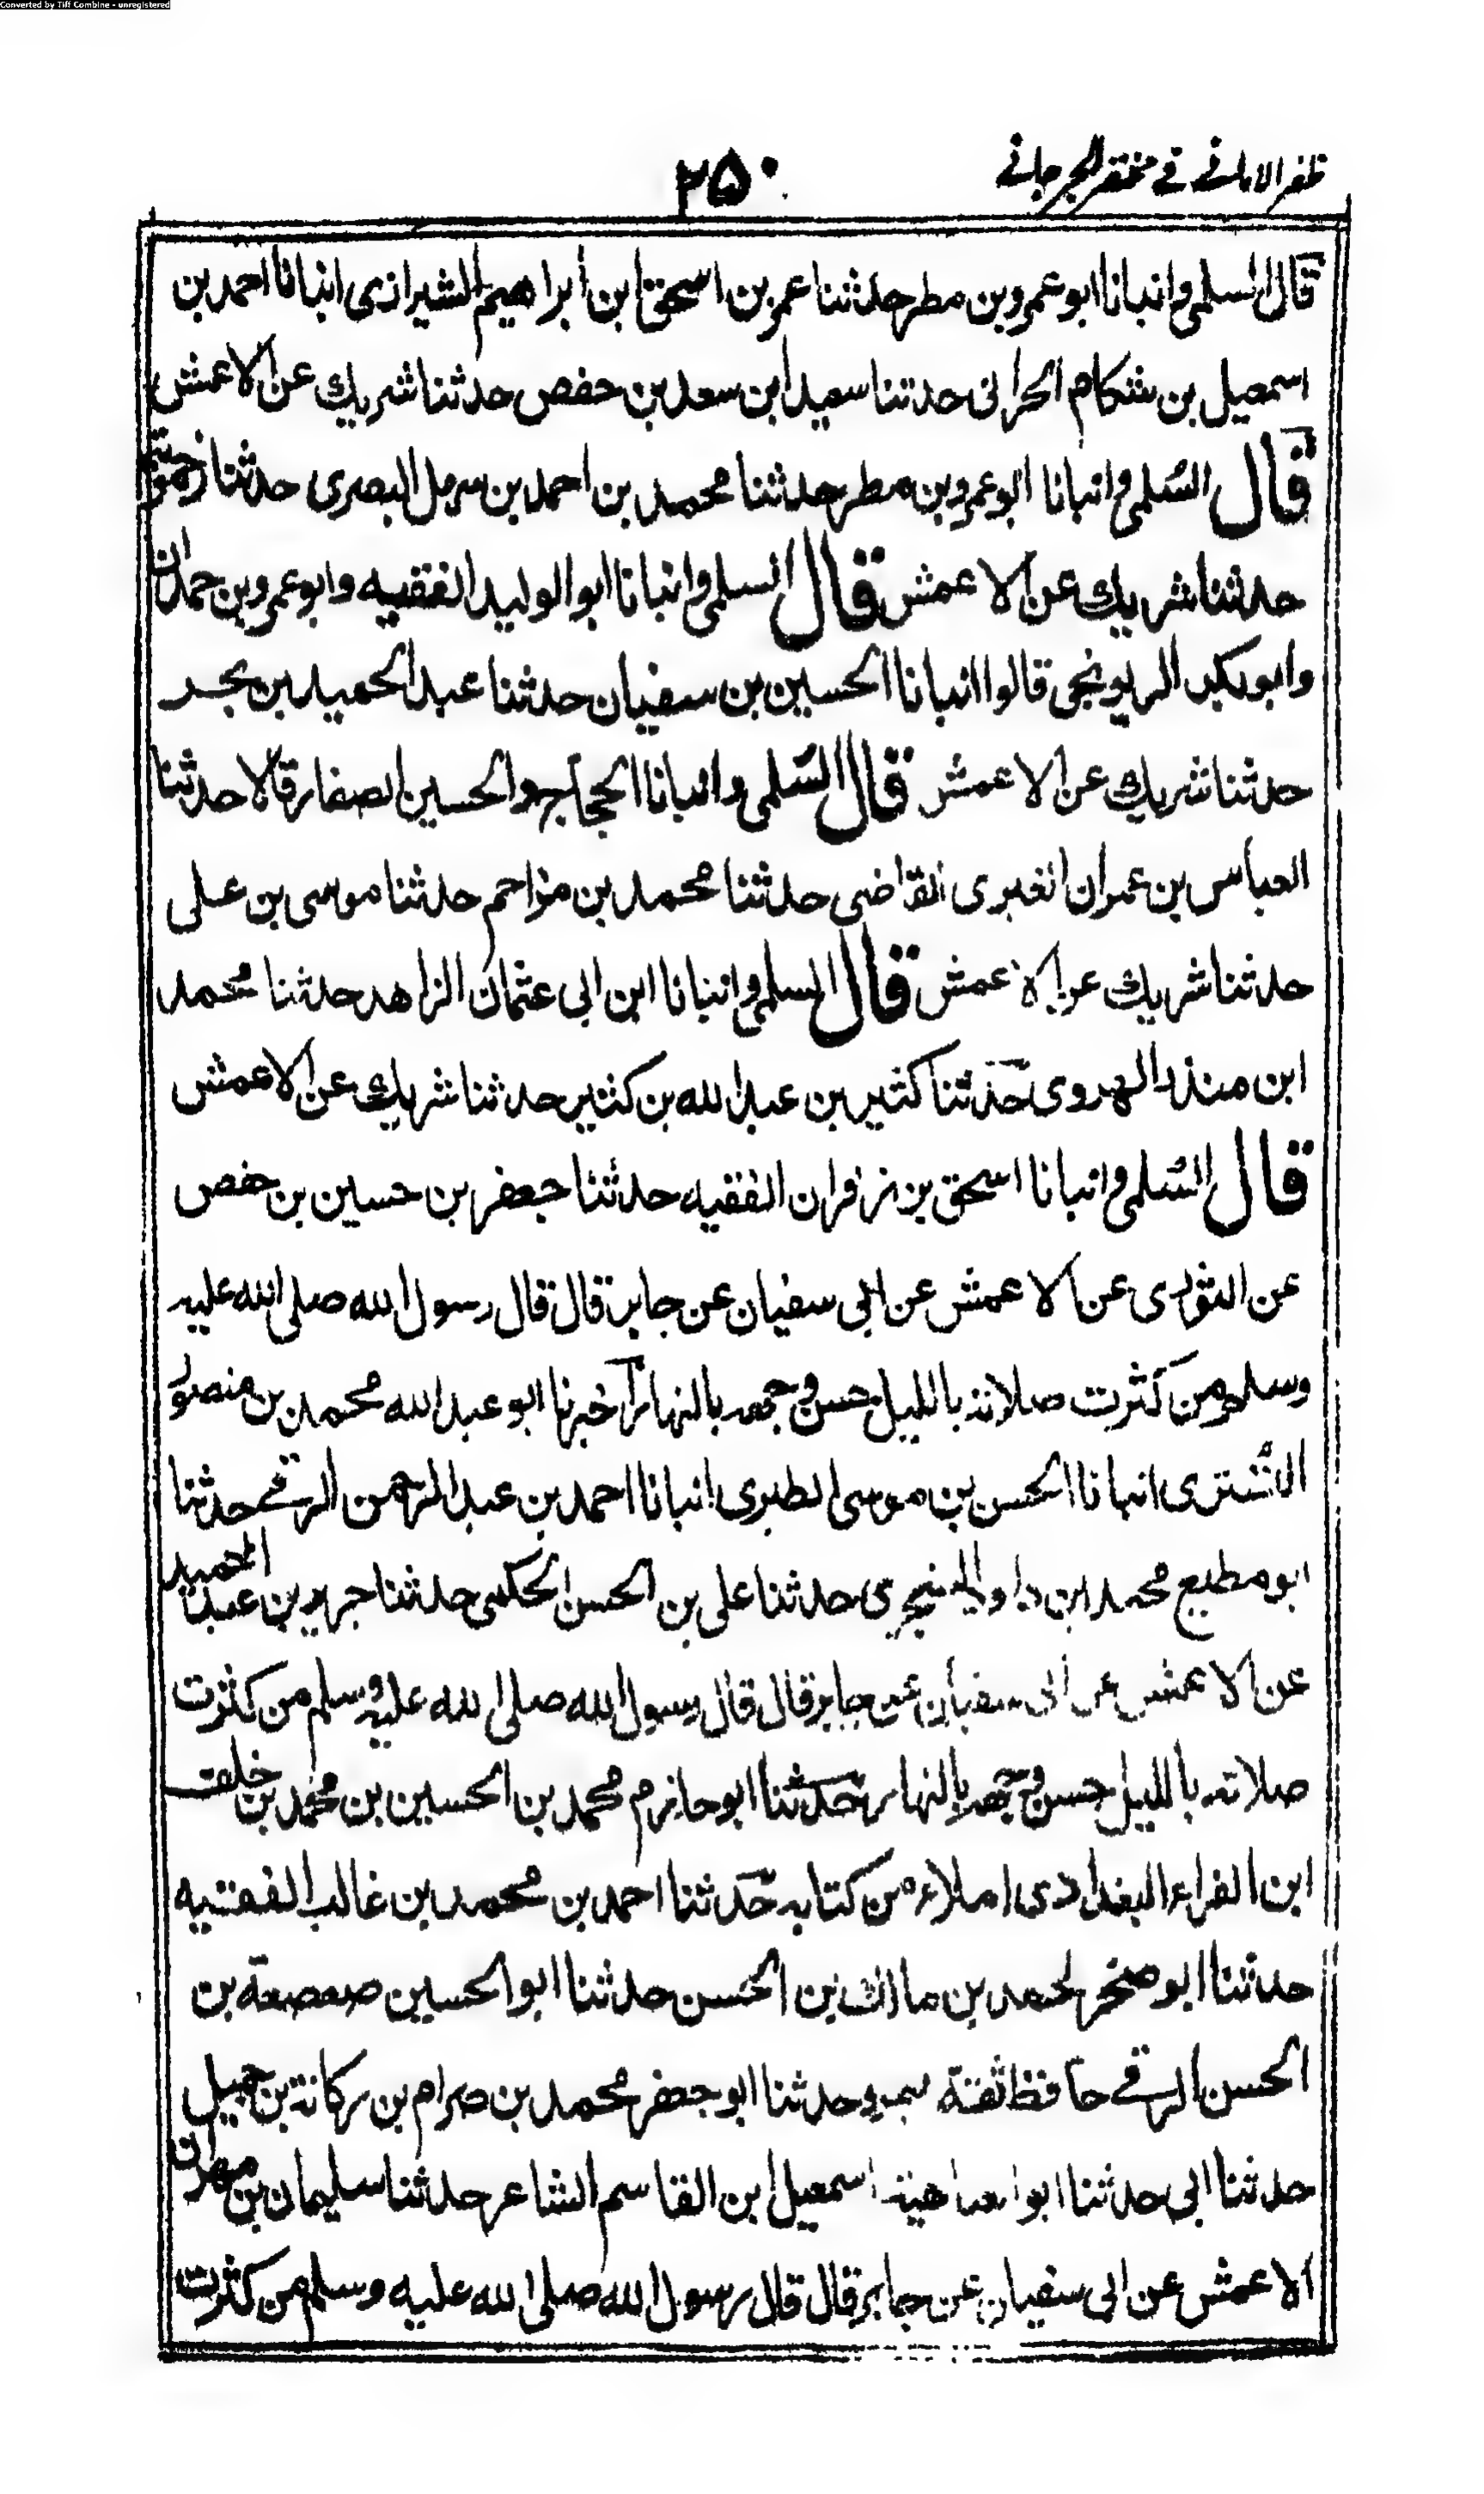 Converted by Tiff Combine - unregistered
ظفر الامانے فے مختصر الجرجانے
۲۵۰
قال السلمی وانبانا ابو عمرو بن مطر حدثنا عمر بن اسحق ابن ابراهیم الشیرازی انبانا احمد بن
اسمعیل بن شکام الحرانی حدثنا سعید ابن سعد بن حفص حدثنا شریك عن الاعمش
قال السلمی وانبانا ابو عمرو بن مطر حدثنا محمد بن احمد بن سهل البصری حدثنا زحمویه
حدثنا شریك عن الاعمش قال السلمی وانبانا ابو الولید الفقیه وابو عمرو بن حمدان
وابو بکر الریونجی قالوا انبانا الحسین بن سفیان حدثنا عبد الحمید بن بحر
حدثنا شریك عن الاعمش قال السلمی وانبانا الحجاجی والحسین الصفار قالا حدثنا
العباس بن عمران الغبری القاضی حدثنا محمد بن مزاحم حدثنا موسی بن علی
حدثنا شریك عن الاعمش قال السلمی وانبانا ابن ابی عثمان الزاهد حدثنا محمد
ابن منذر الهروی حدثنا کثیر بن عبد الله بن کثیر حدثنا شریك عن الاعمش
قال السلمی وانبانا اسحق بن زفران الفقیه حدثنا جعفر بن حسین بن حفص
عن الثوری عن الاعمش عن ابی سفیان عن جابر قال قال رسول الله صلی الله علیه
وسلم من کثرت صلاته باللیل حسن وجهه بالنهار اخبرنا ابو عبد الله محمد بن منصور
التُسْتری انبانا الحسن بن موسی الطبری انبانا احمد بن عبد الرحمن الرقے حدثنا
ابو مطیع محمد ابن داود حدثنا علی بن الحسن الحکمی حدثنا جریر بن عبد الحمید
عن الاعمش عن ابی سفیان عن جابر قال قال رسول الله صلی الله علیه وسلم من کثرت
صلاته باللیل حسن وجهه بالنهار حدثنا ابو حازم محمد بن الحسین بن محمد بن خلف
ابن الفراء البغدادی املاء من کتابه حدثنا احمد بن محمد بن غالب الفقیه
حدثنا ابو صخر محمد بن مالك بن الحسن حدثنا ابو الحسین صعصعة بن
الحسن الرقے حافظ ثقة بمرو حدثنا ابو جعفر محمد بن صرام بن رکانة بن جمیل
حدثنا ابی حدثنا ابو العتاهیة اسمعیل ابن القاسم الشاعر حدثنا سلیمان بن مهران
الاعمش عن ابی سفیان عن جابر قال قال رسول الله صلی الله علیه وسلم من کثرت